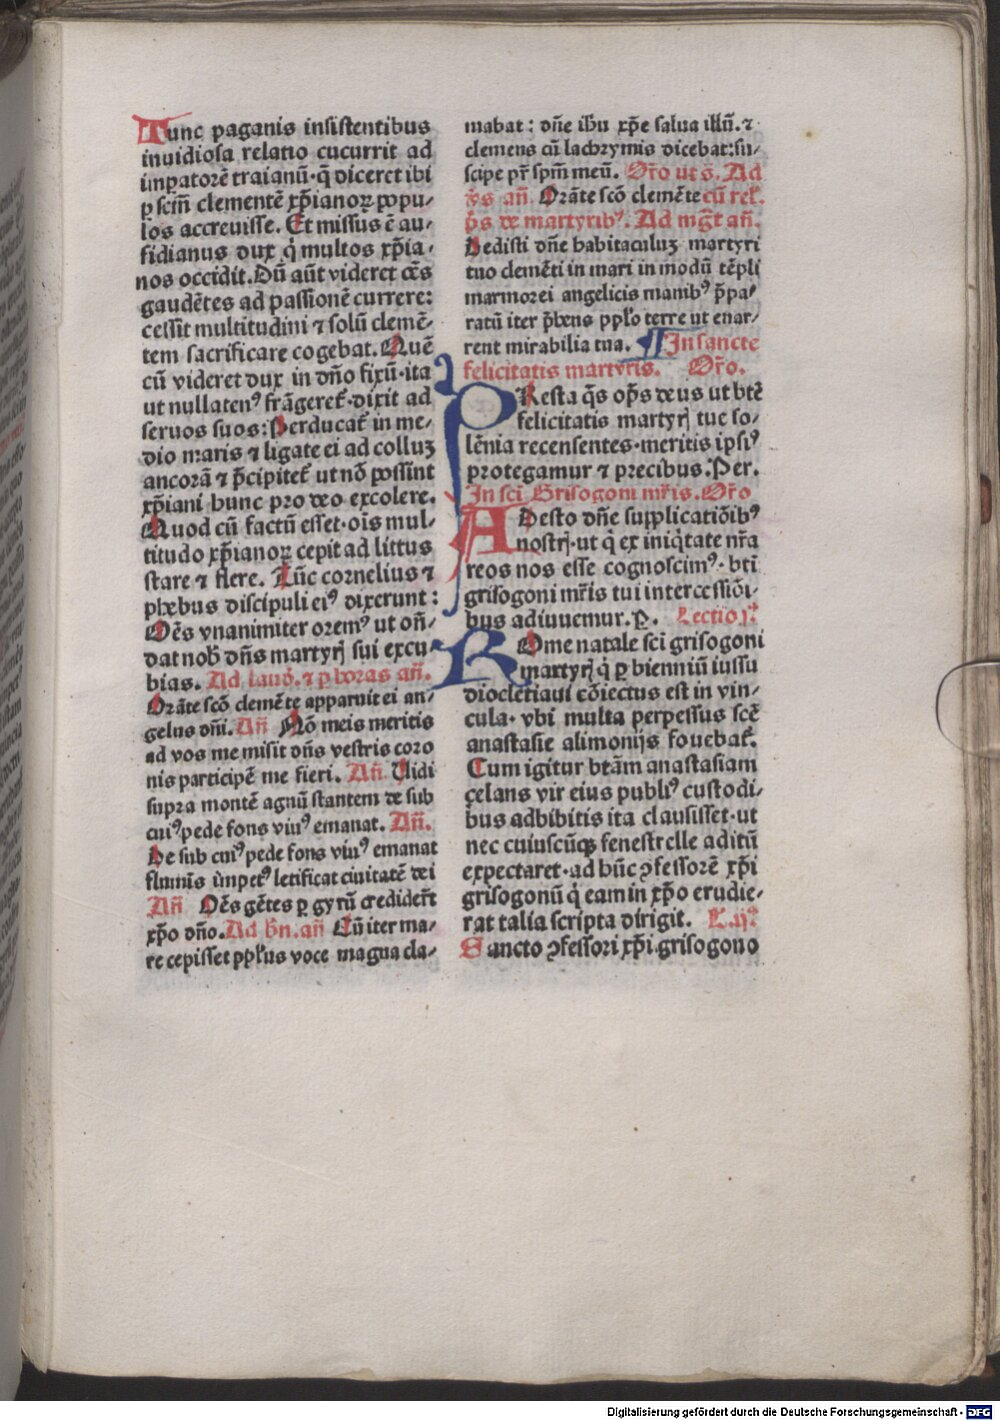 Tunc paganis insistentibus
inuidiosa relatio cucurrit ad
imꝑatorē traianū·q̄ diceret ibi
ꝑ scīn̄ clementē xp̄ianoꝝ popu-
los accreuisse. Et missus ē au-
fidianus dux q̇ multos xp̄ia-
nos occidit. Dū aūt videret oēs
gaudētes ad passionē currere:
cessit multitudini ⁊ solū clemē-
tem sacrificare cogebat. Quē
cū videret dux in dn̄o fixū·ita
ut nullatenꝰ frāgeret᷑·dixit ad
seruos suos: Perducat᷑ in me-
dio maris ⁊ ligate ei ad colluꝫ
ancorā ⁊ p̄cipitet᷑ ut nō possint
xp̄iani hunc pro deo excolere.
Quod cū factū esset·oīs mul-
titudo xp̄ianoꝝ cepit ad littus
stare ⁊ flere. Tūc cornelius ⁊
phebus discipuli eiꝰ dixerunt:
Oēs vnanimiter oremꝰ ut on̄-
dat nob̄ dn̄s martyrꝭ sui excu-
bias. Ad laud̄. ⁊ ꝑ horas an̄.
Orāte scō clemēte apparuit ei an-
gelus dn̄i. An̄ Nō meis meritis
ad vos me misit dn̄s vestris coro
nis participē me fieri. An̄ Uidi
supra montē agnū stantem de sub
cuiꝰ pede fons viuꝰ emanat. An̄.
De sub cuiꝰ pede fons viuꝰ emanat
flumīs impetꝰ letificat ciuitatē dei
An̄ Oēs gētes ꝑ gyrū crediderūt
xp̄o dn̄o. Ad bn̄. an̄ Cū iter ma-
re cepisset ppl̄us voce magna cla-
mabat: dn̄e ihu xp̄e salua illū. ⁊
clemens cū lachrymis dicebat: su-
scipe pr̄ spm̄ meū. Or̄o ut s̄. Ad
v̄s an̄. Orāte scō clemēte cū rel̄.
p̄s de martyribꝰ. Ad mgt̄ an̄.
Dedisti dn̄e habitaculuꝫ martyri
tuo clemēti in mari in modū tēpli
marmorei angelicis manibꝰ p̄pa-
ratū iter p̄bens ppl̄o terre ut enar-
rent mirabilia tua. ¶ In sancte
felicitatis martyris. Or̄o.
PResta q̄s op̄s deus ut btē
felicitatis martyrꝭ tue so-
lēnia recensentes·meritis ipsiꝰ
protegamur ⁊ precibus. Per.
In scī Grisogoni mr̄is. Or̄o
ADesto dn̄e supplicatiōibꝰ
nostrꝭ·ut q̇ ex iniq̇tate nr̄a
reos nos esse cognoscimꝰ·bti
grisogoni mr̄is tui intercessiōi-
bus adiuuemur. P. Lectio j.
ROme natale scī grisogoni
martyrꝭ q̇ ꝑ bienniū iussu
diocletiani cōiectus est in vin-
cula·vbi multa perpessus scē
anastasie alimonijs fouebat᷑.
Cum igitur btām anastasiam
celans vir eius publiꝰ custodi-
bus adhibitis ita clausisset·ut
nec cuiuscūqꝫ fenestrelle aditū
expectaret·ad hūc ꝯfessorē xp̄i
grisogonū q̇ eam in xp̄o erudie-
rat talia scripta dirigit. L. ij.
Sancto ꝯfessori xp̄i grisogono
Digitalisierung gefördert durch die Deutsche Forschungsgemeinschaft - DFG